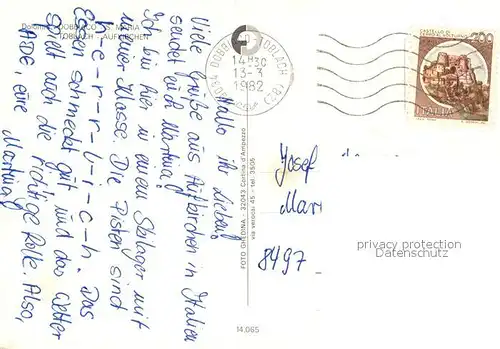 Dolomiti DOBBIACO - S. MARIA
TOBLACH - AUFKIRCHEN
Hallo ihr Lieben!
Viele Grüße aus Aufkirchen in Italien
sendet Euch Martina!
Ich bin hier in einem Skilager mit
meiner Klasse. Die Pisten sind
h-e-r-r-l-i-c-h. Das
Essen schmeckt gut und das Wetter
spielt auch die richtige Rolle. Also,
ADE, eure
Martina!
FOTO GHEDINA - 32043 Cortina d'Ampezzo
via verocai 45 - tel. 3505
14.065
39034 DOBBIACO - TOBLACH (BZ)
14H30
13-3
1982
200
ITALIA
Josef
Mari
8497
privacy protection
Datenschutz